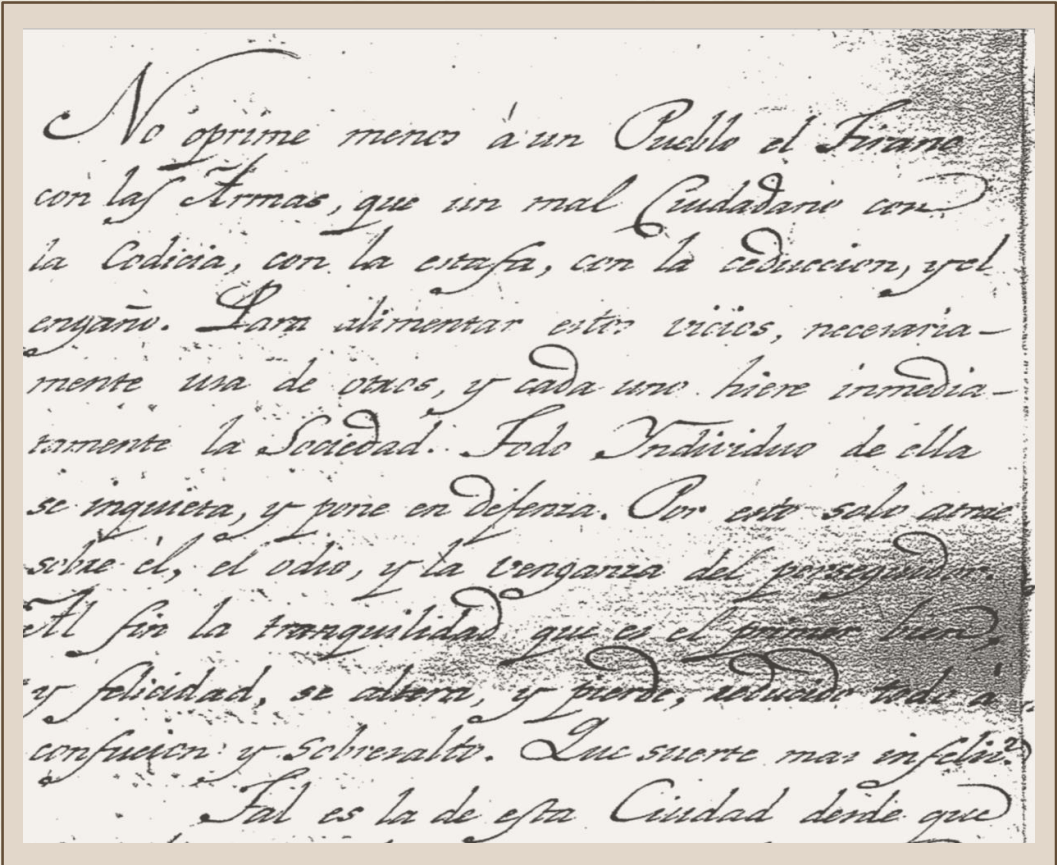 No oprime menos à un Pueblo el Tirano
con las Armas, que un mal Ciudadano con
la Codicia, con la estafa, con la ceduccion, y el
engaño. Para alimentar estos vicios, necesaria-
mente usa de otros, y cada uno hiere inmedia-
tamente la Sociedad. Todo Yndividuo de ella
se inquieta, y pone en defenza. Por esto solo atrae
sobre èl, el odio, y la venganza del perseguidor.
Al fin la tranquilidad que es el primer bien,
y felicidad, se altera, y pierde, reducido todo à
confucion y sobresalto. Que suerte mas infeliz?
Tal es la de esta Ciudad desde que